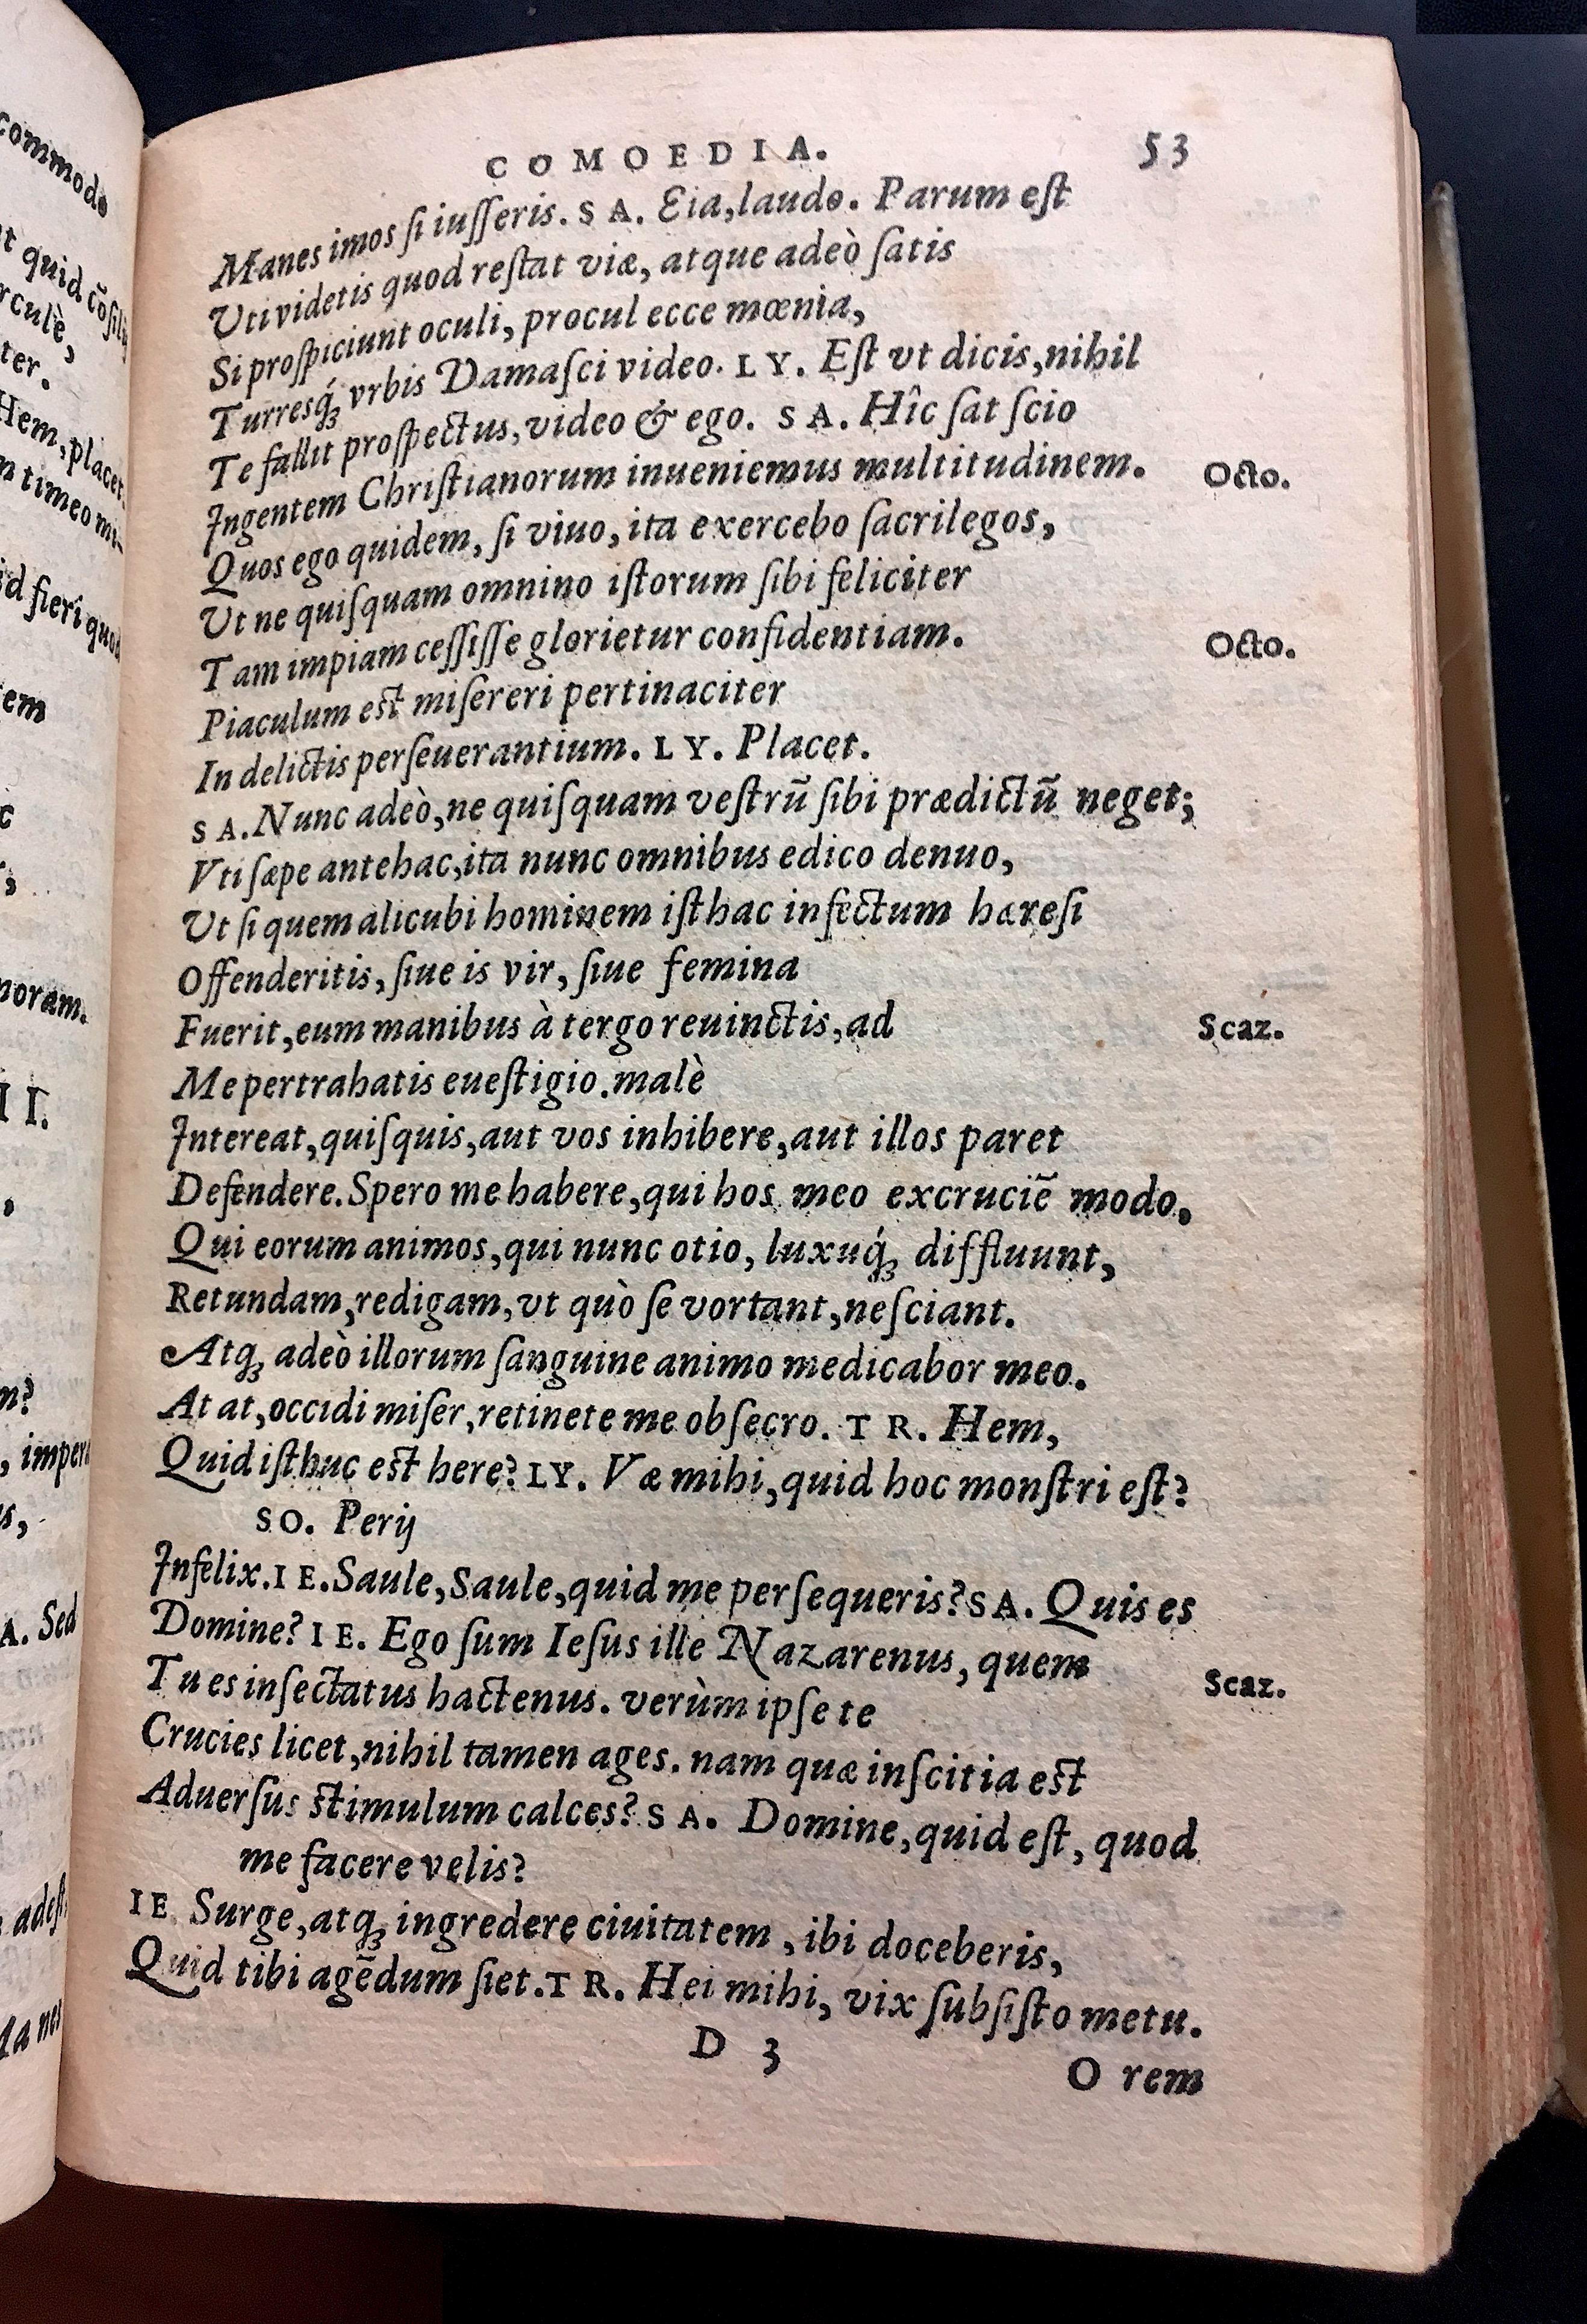 commodo
t quid cōsilij
rculè,
ter.
Hem, placet.
n timeo mi-
id fieri quod
tem
c
noram.
II.
n?
, impera
s,
A. Sed
adest.
Manes
COMOEDIA. 53
Manes imos ſi iuſſeris. SA. Eia, laudo. Parum eſt
Uti videtis quod reſtat viæ, atque adeò ſatis
Si proſpiciunt oculi, procul ecce mœnia,
Turresq́ꝫ vrbis Damaſci video. LY. Eſt vt dicis, nihil
Te fallit proſpectus, video & ego. SA. Hîc ſat ſcio
Ingentem Chriſtianorum inueniemus multitudinem. Octo.
Quos ego quidem, ſi viuo, ita exercebo ſacrilegos,
Ut ne quiſquam omnino iſtorum ſibi feliciter
Tam impiam ceſſiſſe glorietur confidentiam. Octo.
Piaculum eſt miſereri pertinaciter
In delictis perſeuerantium. LY. Placet.
SA. Nunc adeò, ne quiſquam veſtrū ſibi prædictū neget;
Vti ſæpe antehac, ita nunc omnibus edico denuo,
Ut ſi quem alicubi hominem iſthac infectum hæreſi
Offenderitis, ſiue is vir, ſiue femina
Fuerit, eum manibus à tergo reuinctis, ad Scaz.
Me pertrahatis eueſtigio. malè
Intereat, quiſquis, aut vos inhibere, aut illos paret
Defendere. Spero me habere, qui hos meo excruciē modo,
Qui eorum animos, qui nunc otio, luxuq́ꝫ diffluunt,
Retundam, redigam, vt quò ſe vortant, neſciant.
Atqꝫ adeò illorum ſanguine animo medicabor meo.
At at, occidi miſer, retinete me obſecro. TR. Hem,
Quid iſthuc eſt here? LY. Væ mihi, quid hoc monſtri eſt?
SO. Perij
Infelix. IE. Saule, Saule, quid me perſequeris? SA. Quis es
Domine? IE. Ego ſum Ieſus ille Nazarenus, quem
Tu es inſectatus hactenus. verùm ipſe te Scaz.
Crucies licet, nihil tamen ages. nam quæ inſcitia eſt
Aduerſus ſtimulum calces? SA. Domine, quid eſt, quod
me facere velis?
IE Surge, atqꝫ ingredere ciuitatem, ibi doceberis,
Quid tibi agēdum ſiet. TR. Hei mihi, vix ſubſiſto metu.
D 3
O rem